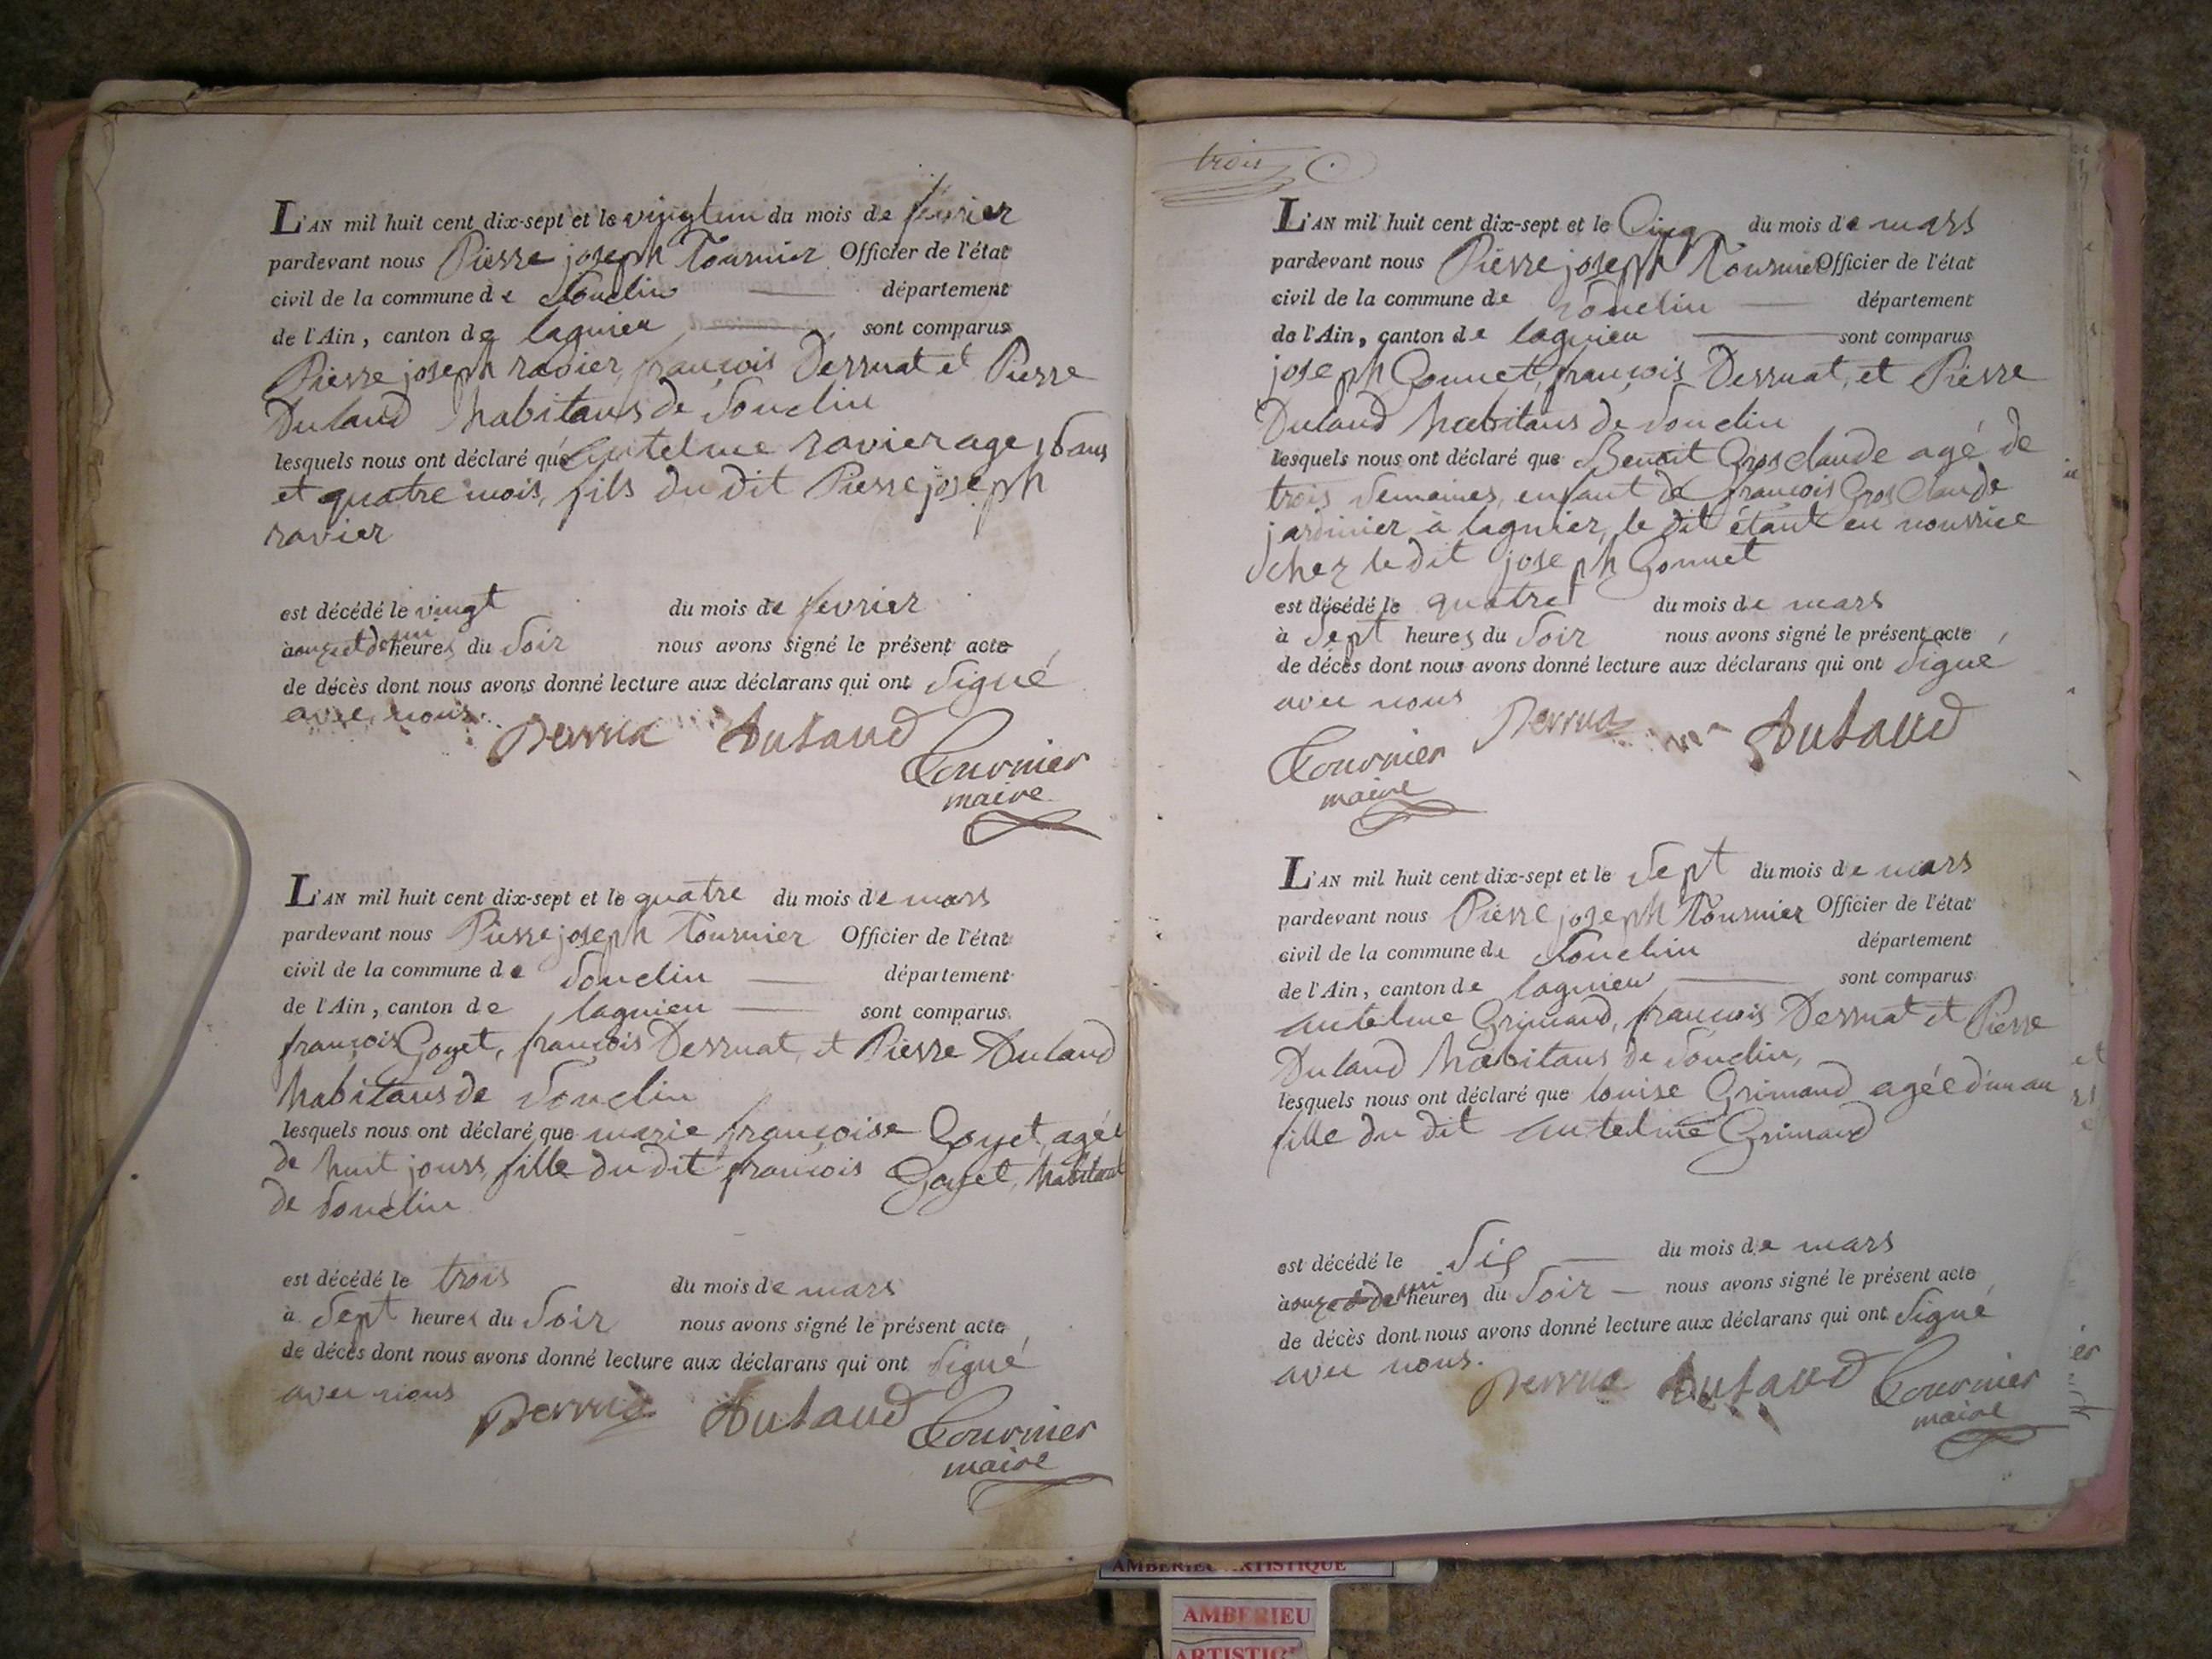 L'AN mil huit cent dix-sept et le vingt un du mois de février
pardevant nous Pierre joseph Tournier Officier de l'état
civil de la commune de Souclin département
de l'Ain, canton de lagnieu sont comparus
Pierre joseph ravier, françois Derruat et Pierre
Dulaud habitans de Souclin
lesquels nous ont déclaré que antelme ravier age 16 ans
et quatre mois, fils du dit Pierre joseph
ravier
est décédé le vingt du mois de fevrier
à onze et demi heures du Soir nous avons signé le présent acte
de décès dont nous avons donné lecture aux déclarans qui ont Signé
avec nous.
Derrua Dulaud
Tournier
maire
L'AN mil huit cent dix-sept et le quatre du mois de mars
pardevant nous Pierre joseph Tournier Officier de l'état
civil de la commune de Souclin département
de l'Ain, canton de lagnieu sont comparus
françois Goyet, françois Derruat, et Pierre Dulaud
habitans de Souclin
lesquels nous ont déclaré que marie françoise Goyet, agée
de huit jours, fille du dit françois Goyet, habitant
de Souclin
est décédé le trois du mois de mars
à Sept heures du Soir nous avons signé le présent acte
de décès dont nous avons donné lecture aux déclarans qui ont Signé
avec nous
Derrua Dulaud Tournier
maire
trois
L'AN mil huit cent dix-sept et le Cinq du mois de mars
pardevant nous Pierre joseph Tournier Officier de l'état
civil de la commune de Souclin département
de l'Ain, canton de lagnieu sont comparus
joseph Gonnet, françois Derruat, et Pierre
Dulaud habitans de Souclin
lesquels nous ont déclaré que Benoit Gros claude agé de
trois Semaines, enfant de françois Gros Claude
jardinier à lagnier, le dit étant en nourrice
chez le dit joseph Gonnet
est décédé le quatre du mois de mars
à Sept heures du Soir nous avons signé le présent acte
de décès dont nous avons donné lecture aux déclarans qui ont Signé
avec nous
Derrua Dulaud
Tournier
maire
L'AN mil huit cent dix-sept et le Sept du mois de mars
pardevant nous Pierre joseph Tournier Officier de l'état
civil de la commune de Souclin département
de l'Ain, canton de lagnieu sont comparus
antelme Grimand, françois Derruat et Pierre
Dulaud habitans de Souclin,
lesquels nous ont déclaré que louise Grimand agée d'un an
fille du dit antelme Grimand
est décédé le Six du mois de mars
à onze et demi heures du Soir nous avons signé le présent acte
de décès dont nous avons donné lecture aux déclarans qui ont Signé
avec nous.
Derrua Dulaud Tournier
maire
AMBERIEU ARTISTIQUE
AMBERIEU
ARTISTIQUE